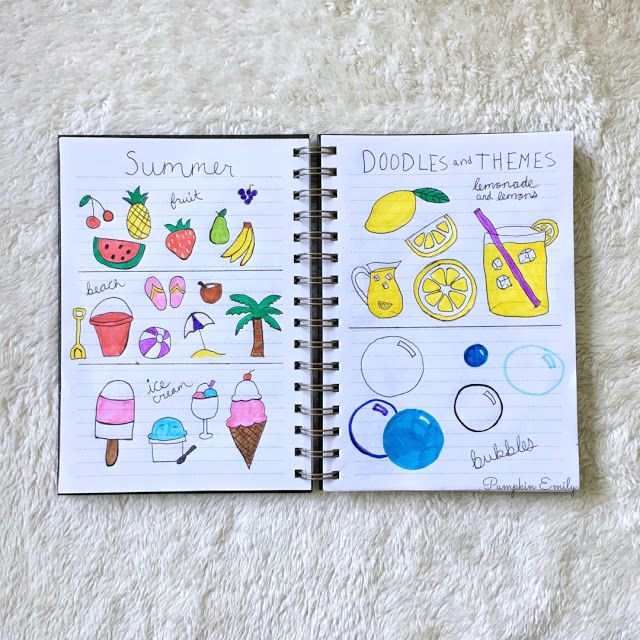 Summer
fruit
beach
ice
cream
DOODLES and THEMES
lemonade
and lemons
bubbles
Pumpkin Emily